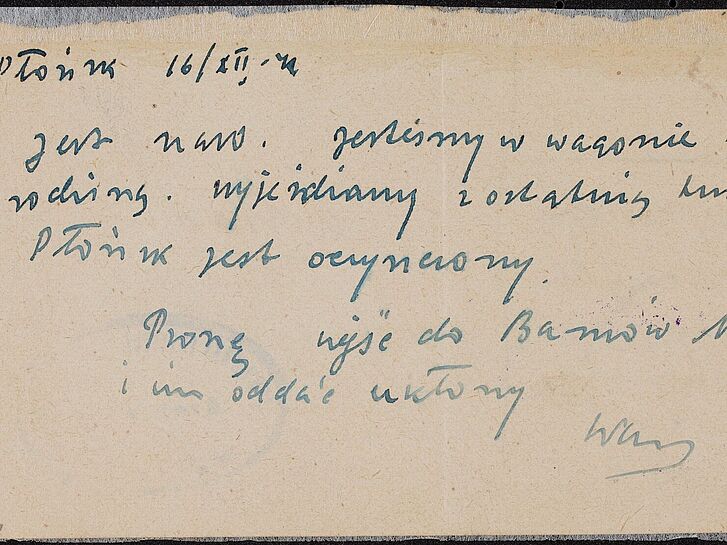 Płońsk 16/XII-42
jest rano. jesteśmy w wagonie
rodziną. wyjeżdżamy z ostatnią
Płońsk jest oczyszczony.
Proszę wyjść do Baranów
i im oddać ukłony